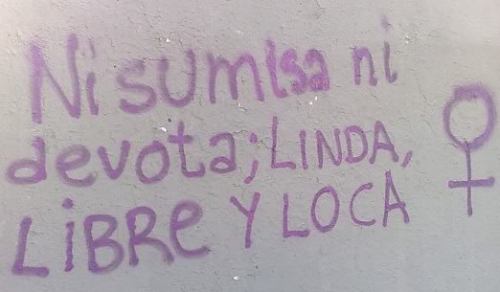 Ni sumisa ni
devota; LINDA,
LiBRe Y LOCA